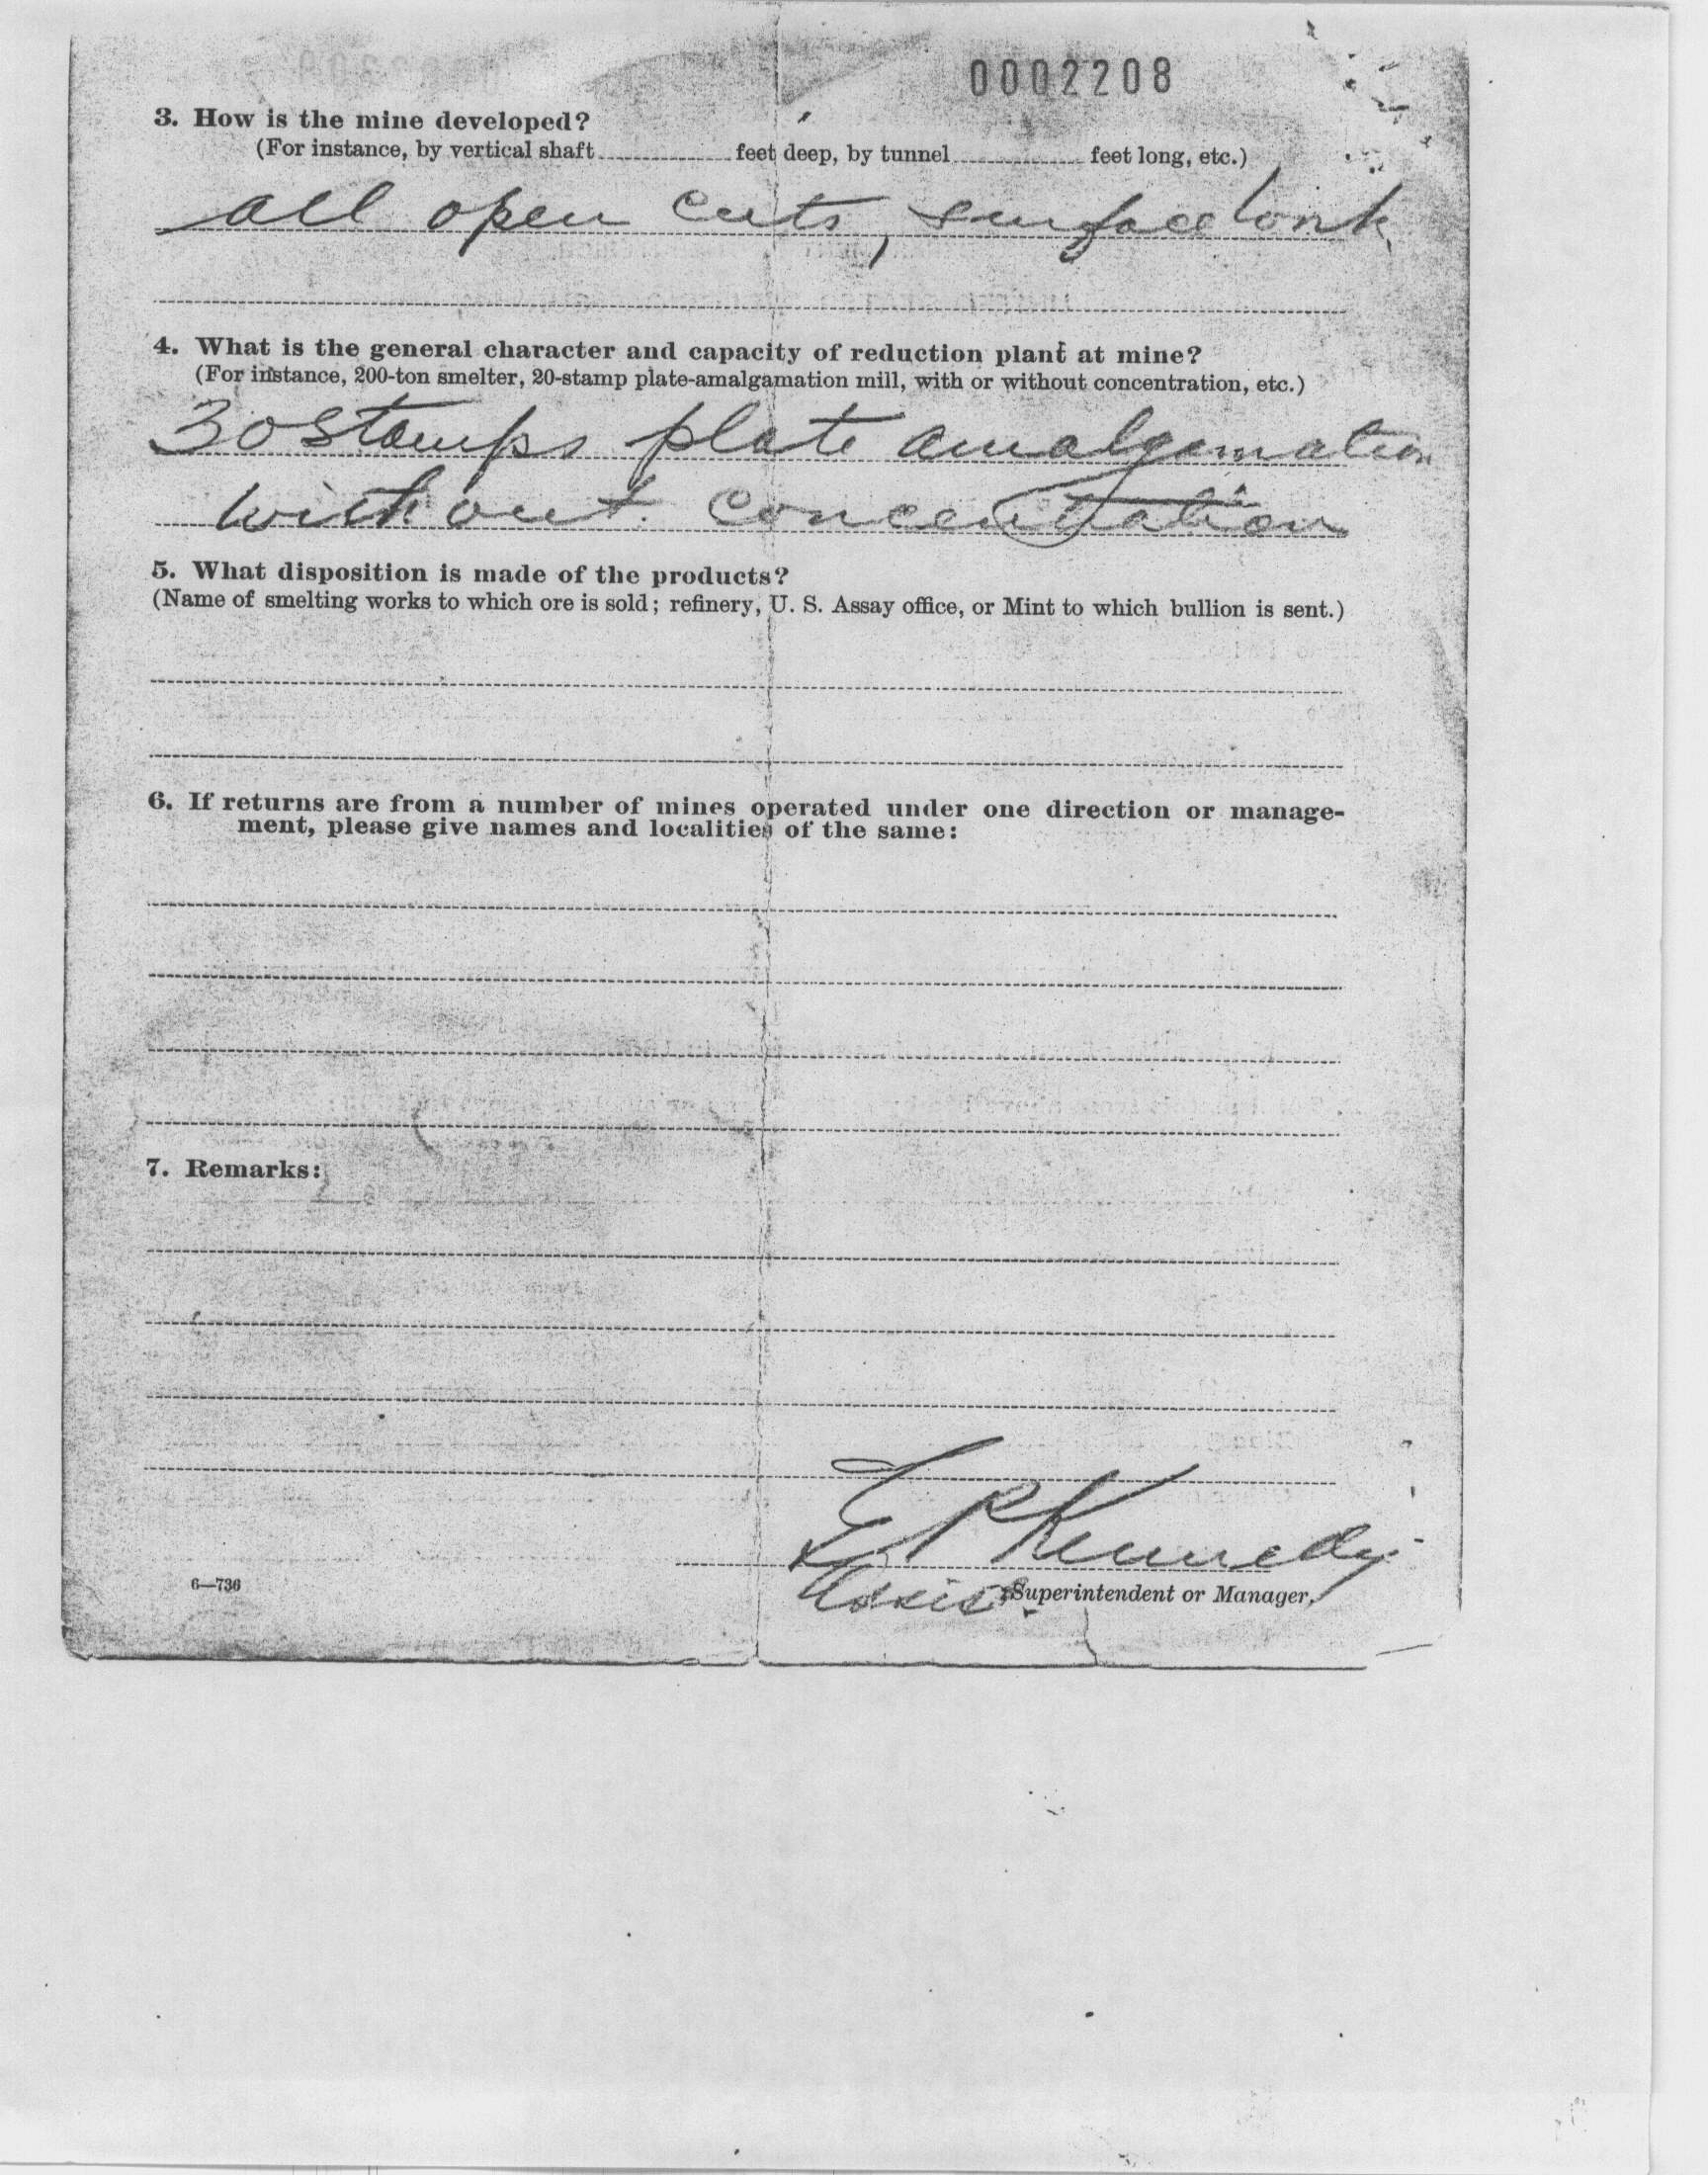 0002208
3. How is the mine developed?
(For instance, by vertical shaft.............. feet deep, by tunnel.............. feet long, etc.)
all open cuts, surface work
4. What is the general character and capacity of reduction plant at mine?
(For instance, 200-ton smelter, 20-stamp plate-amalgamation mill, with or without concentration, etc.)
30 stamps plate amalgamation
without concentration
5. What disposition is made of the products?
(Name of smelting works to which ore is sold; refinery, U. S. Assay office, or Mint to which bullion is sent.)
6. If returns are from a number of mines operated under one direction or manage-
ment, please give names and localities of the same:
7. Remarks:
E R Kennedy
6—736
Assist. Superintendent or Manager.